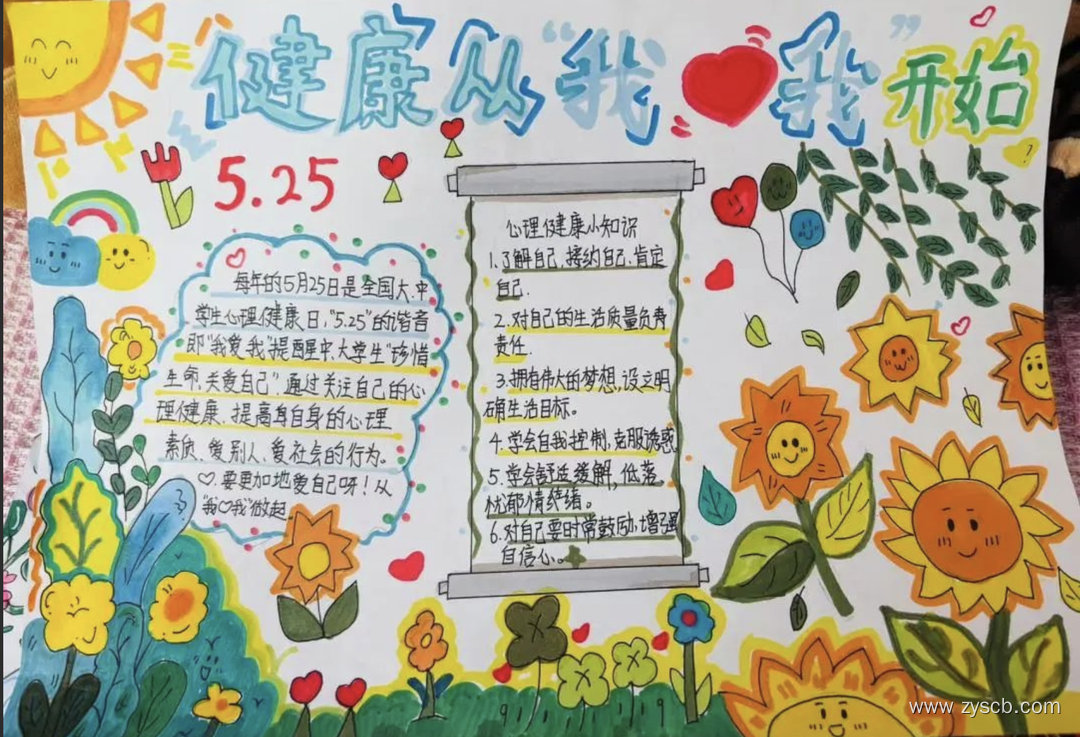 健康从“我❤我”开始
5.25
每年的5月25日是全国大、中
学生心理健康日，“5.25”的谐音
即“我爱我”提醒中、大学生“珍惜
生命、关爱自己”。通过关注自己的心
理健康，提高自身的心理
素质、爱别人、爱社会的行为。
♡.要更加地爱自己呀！从
“我♡我”做起
心理健康小知识
1.了解自己，接纳自己，肯定
自己.
2.对自己的生活质量负责
责任.
3.拥有伟大的梦想，设立明
确生活目标。
4.学会自我控制，克服诱惑
5.学会舒适缓解，低落
忧郁情绪。
6.对自己要时常鼓励，增强
自信心。
www.zyscb.com